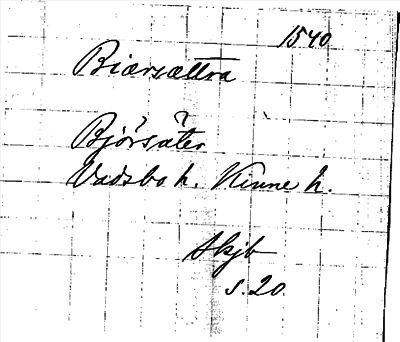 1540
Biærsættra
? ?
Bjørsæter
Vadsbo h. Kinne h.
Skjb
s. 20.